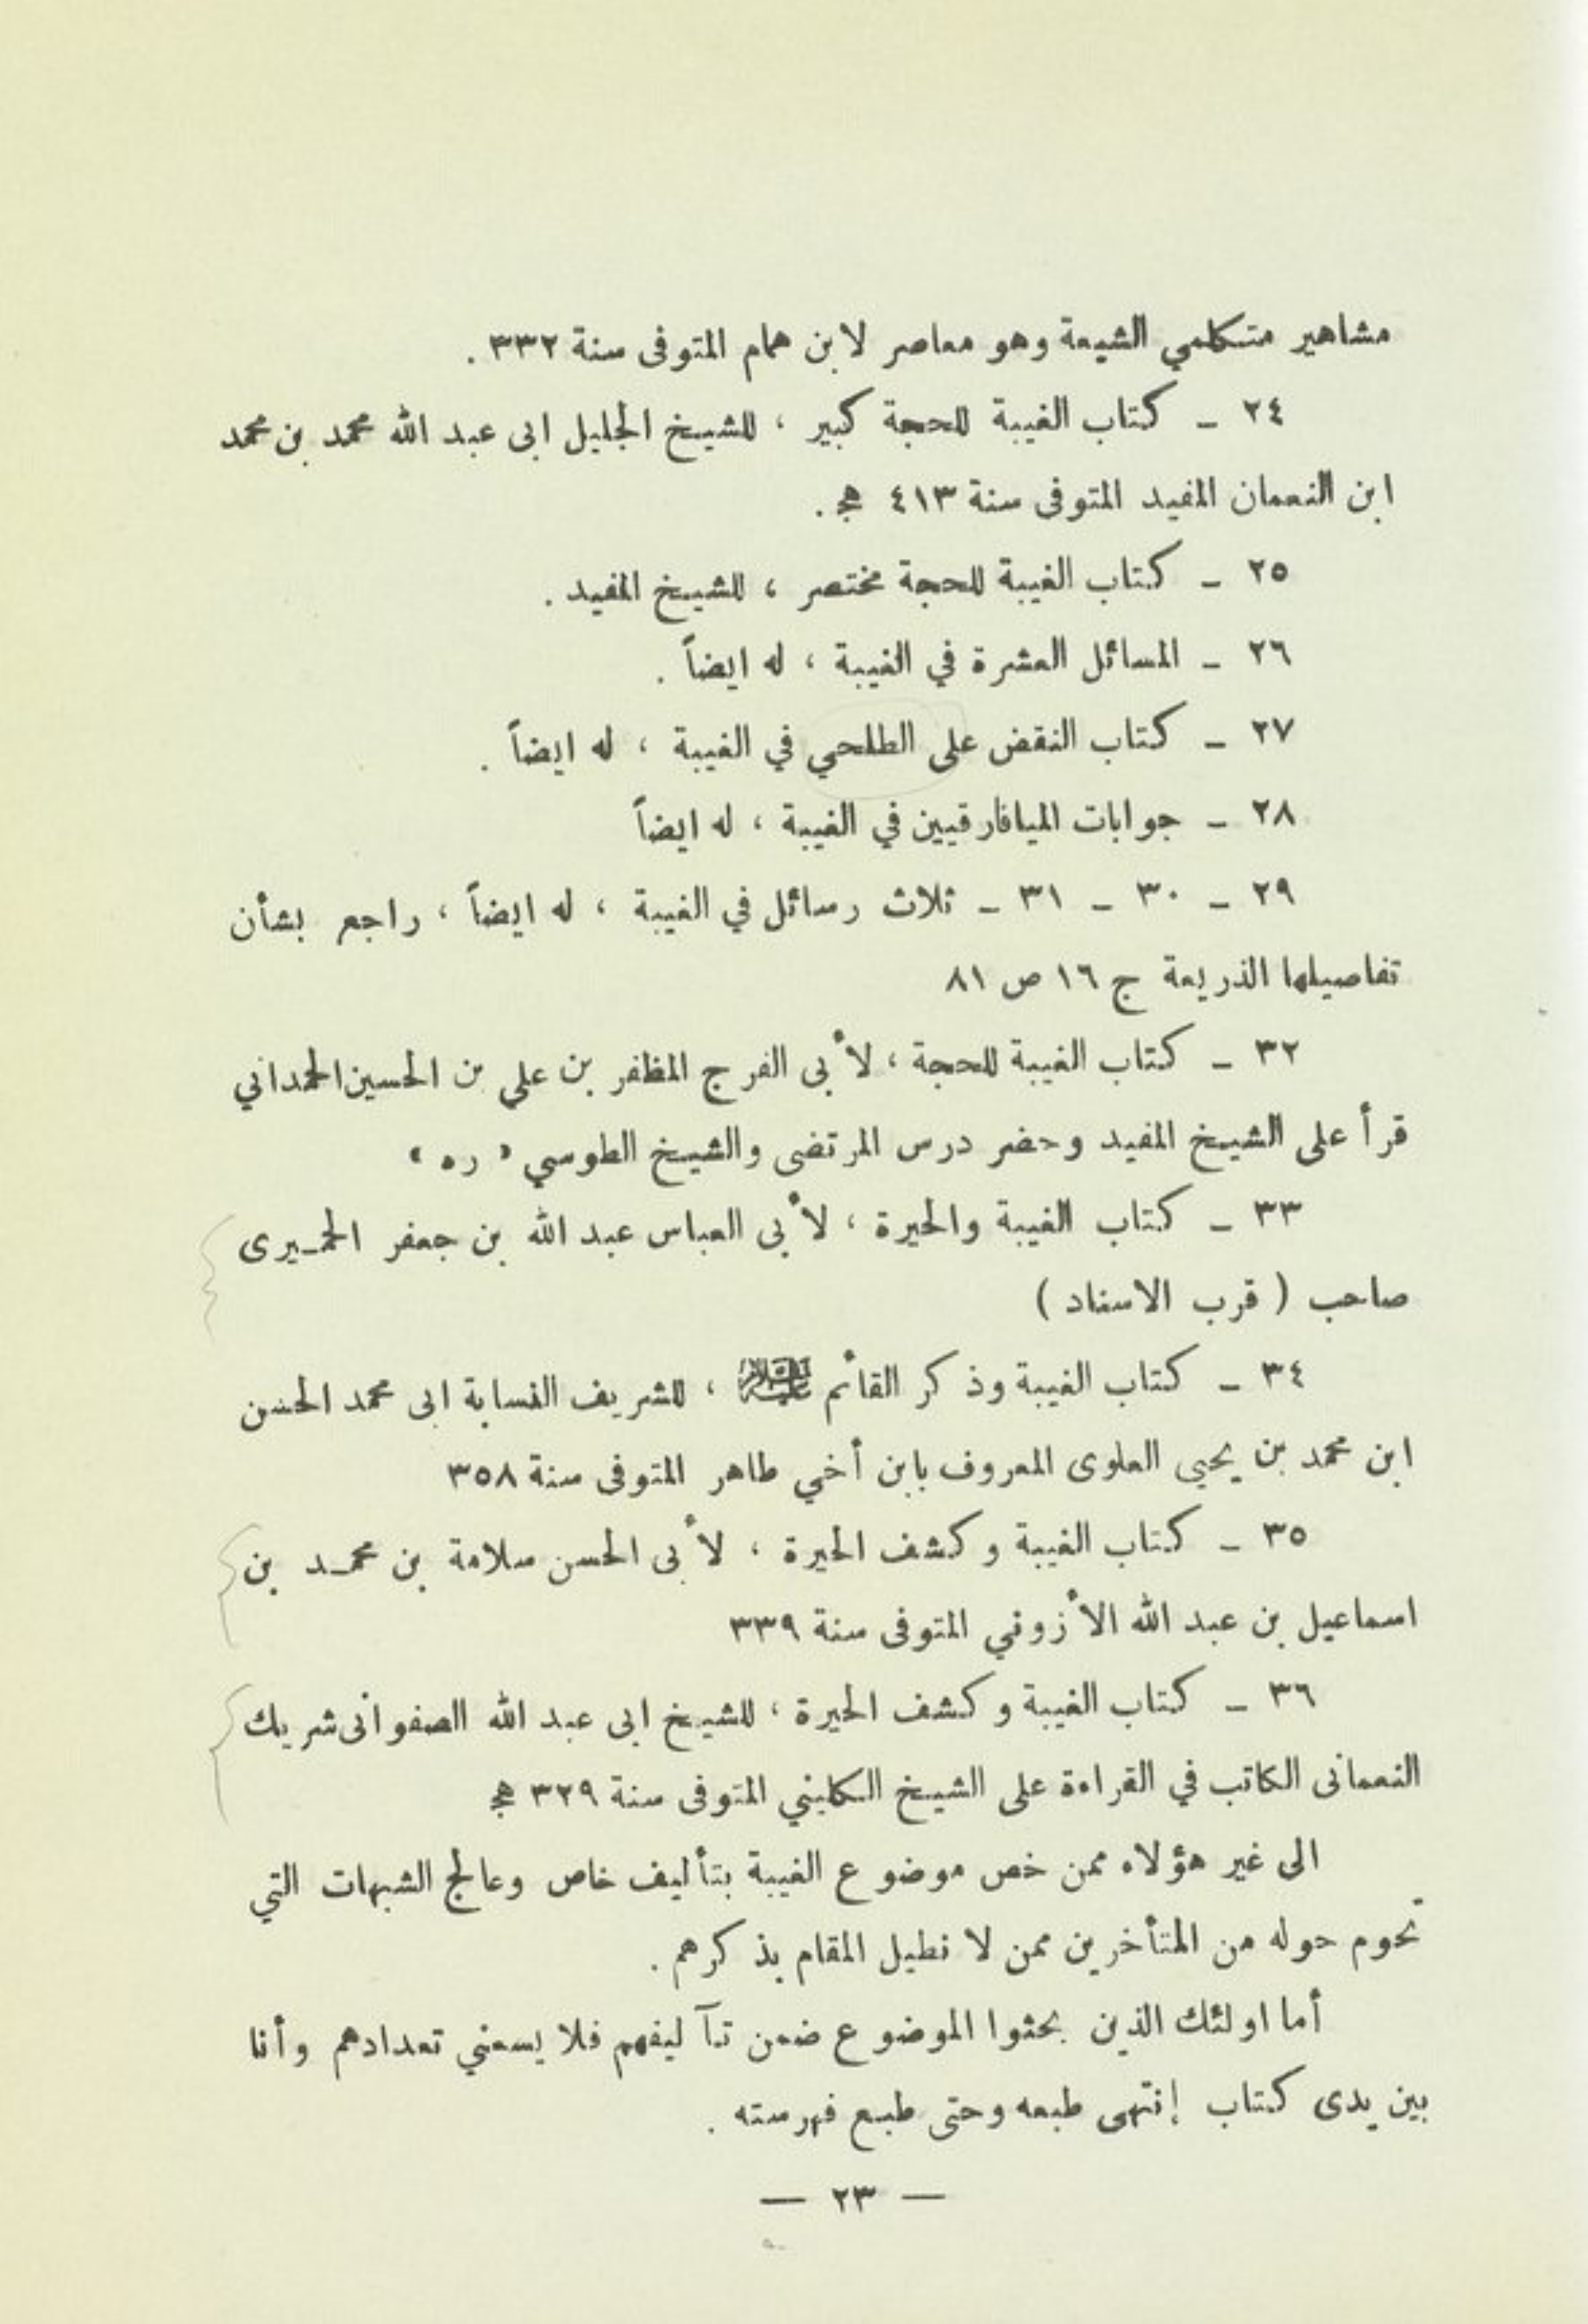 مشاهير متكلمي الشيعة وهو معاصر لابن همام المتوفى سنة ٣٣٢ .
٢٤ ـ كتاب الغيبة للحجة كبير ، للشيخ الجليل ابى عبد الله محمد بن محمد
ابن النعمان المفيد المتوفى سنة ٤١٣ هج .
٢٥ ـ كتاب الغيبة للحجة مختصر ، للشيخ المفيد .
٢٦ ـ المسائل العشرة في الغيبة ، له ايضاً .
٢٧ ـ كتاب النقض على الطلحي في الغيبة ، له ايضاً .
٢٨ ـ جوابات الميافارقيين في الغيبة ، له ايضاً
٢٩ ـ ٣٠ ـ ٣١ ـ ثلاث رسائل في الغيبة ، له ايضاً ، راجع بشأن
تفاصيلها الذريعة ج ١٦ ص ٨١
٣٢ ـ كتاب الغيبة للحجة ، لأبى الفرج المظفر بن علي بن الحسين الحمداني
قرأ على الشيخ المفيد وحضر درس المرتضى والشيخ الطوسي « ره »
٣٣ ـ كتاب الغيبة والحيرة ، لأبى العباس عبد الله بن جعفر الحمـيرى
صاحب ( قرب الاسناد )
٣٤ ـ كتاب الغيبة وذكر القائم عليه السلام ، للشريف النسابة ابى محمد الحسن
ابن محمد بن يحيى العلوى المعروف بابن أخي طاهر المتوفى سنة ٣٥٨
٣٥ ـ كتاب الغيبة وكشف الحيرة ، لأبى الحسن سلامة بن محمـد بن
اسماعيل بن عبد الله الأزوني المتوفى سنة ٣٣٩
٣٦ ـ كتاب الغيبة وكشف الحيرة ، للشيخ ابى عبد الله الصفوانى شريك
النعمانى الكاتب في القراءة على الشيخ الكليني المتوفى سنة ٣٢٩ هج
الى غير هؤلاء ممن خص موضوع الغيبة بتأليف خاص وعالج الشبهات التي
تحوم حوله من المتأخرين ممن لا نطيل المقام بذكرهم .
أما اولئك الذين بحثوا الموضوع ضمن تآليفهم فلا يسعني تعدادهم وأنا
بين يدى كتاب إنتهى طبعه وحتى طبع فهرسته .
— ٢٣ —